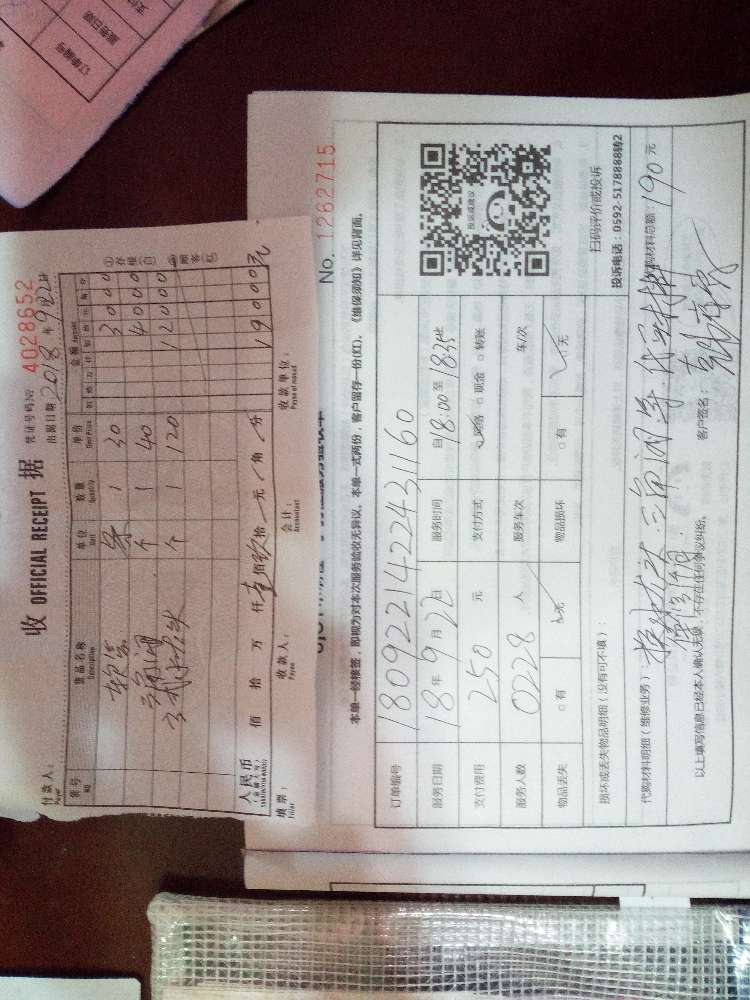 收 OFFICIAL RECEIPT 据
凭证号码№ 4028652
付款人：
Payer
出据日期 2018年9月22日
账号 货品名称 单位 数量 单价 金额 Amount
NO Description Unit Quantity Unit Price
软管 条 1 30 3000
三角阀 个 1 40 4000
个 1 120 12000
①存根(白)
顾客(红)
人民币
佰 拾 万 仟 壹佰玖拾 元 角 分 19000元
填票：
收款人：
Payee
会计：
Accountant
收款单位：
No. 1262715
本单一经接签，即视为对本次服务验收无异议。本单一式两份，客户留存一份(红)，《维保须知》详见背面。
订单编号 1809221422431160
服务日期 18年9月22日 服务时间 自18:00至18:35止
支付费用 250 元 支付方式 网络 □ 现金 □ 转账
服务人数 0228 人 服务车次 车/次
物品丢失 □有 无 物品损坏 □有 □无
投诉或建议
扫码评价或投诉
投诉电话：0592-5178888转2
损坏或丢失物品明细（没有可不填）：
代购材料明细（维修业务）： 三角阀 代买材料 代购材料总额：190元
以上填写信息已经本人确认无误，不存在任何争议纠纷。 客户签名：
订单编号
服务日期